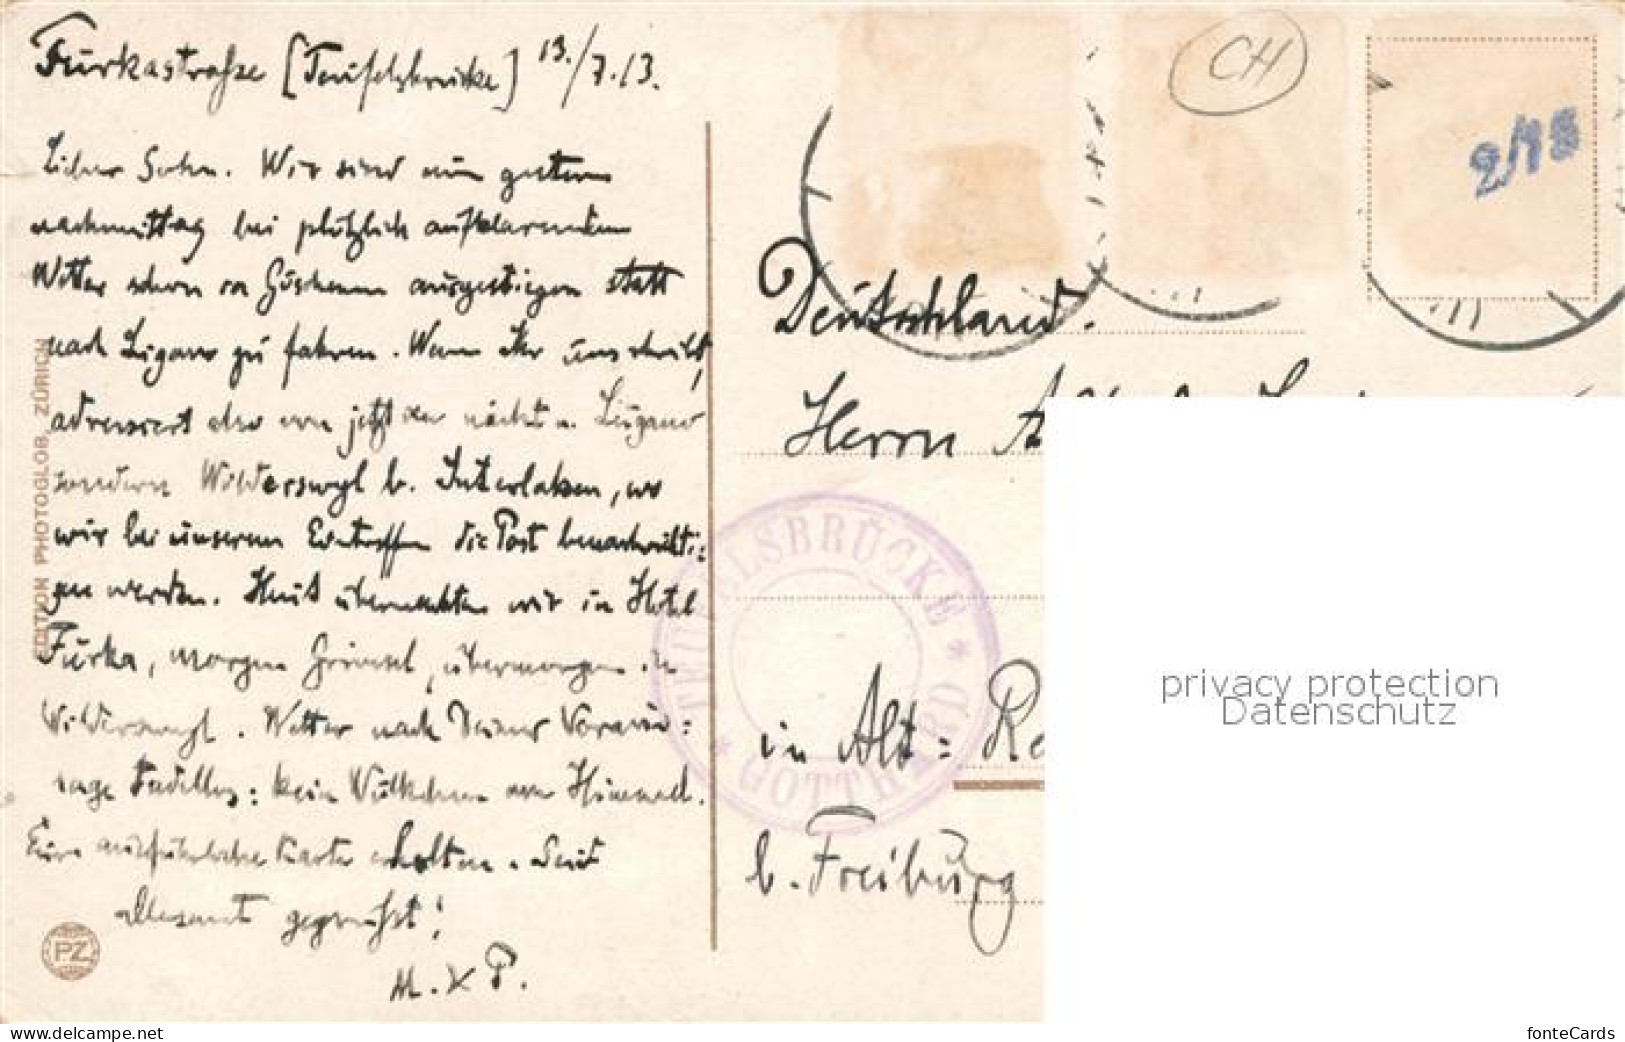 Furkastraße [Teufelsbrücke] 13./7.13.
Lieber Sohn. Wir sind nun gestern
nachmittag bei plötzlich aufklarendem
Wetter schon in Göschenen ausgestiegen statt
nach Lugano zu fahren. Wenn Ihr uns schreibt,
adressiert also von jetzt an nicht n. Lugano
sondern Wilderswyl b. Interlaken, wo
wir bei unserem Eintreffen die Post benachrichti=
gen werden. Heut übernachten wir in Hotel
Furka, morgen Grimsel, übermorgen in
Wilderswyl. Wetter nach Deiner Voraus=
sage tadellos: kein Wölkchen am Himmel.
Eure ausführliche Karte erhalten. Seid
allesamt gegrüßt!
M. & P.
EDITION PHOTOGLOB, ZÜRICH
PZ
CH
2/15
Deutschland.
Herrn
in Alt=
b. Freiburg
TEUFELSBRÜCKE * GOTTHARD *
privacy protection
Datenschutz
https://www.delcampe.net
fonteCards